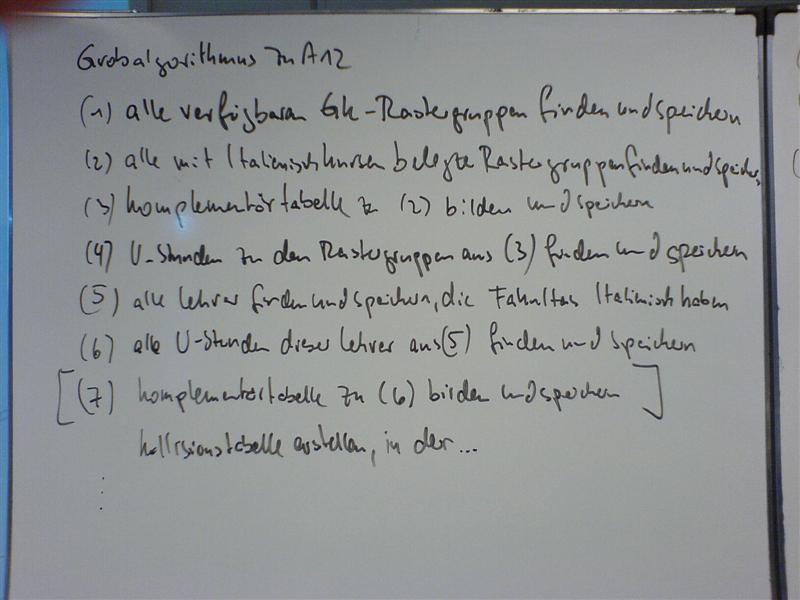 Grobalgorithmus zu A12
(1) alle verfügbaren GK-Rastergruppen finden und speichern
(2) alle mit Italienischkursen belegte Rastergruppen finden und speichern
(3) Komplementärtabelle zu (2) bilden und speichern
(4) U-Stunden zu den Rastergruppen aus (3) finden und speichern
(5) alle Lehrer finden und speichern, die Fakultas Italienisch haben
(6) alle U-Stunden dieser Lehrer aus (5) finden und speichern
[(7) Komplementärtabelle zu (6) bilden und speichern]
Kollisionstabelle erstellen, in der ...
⋮